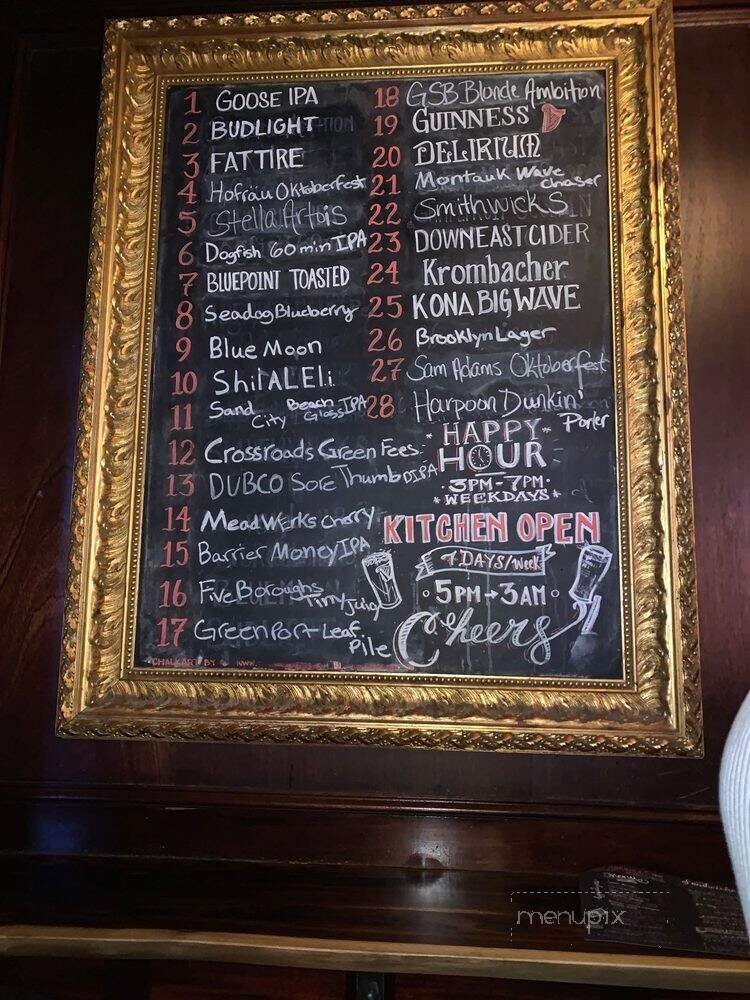 1 GOOSE IPA
2 BUDLIGHT
3 FAT TIRE
4 Hofräu Oktoberfest
5 Stella Artois
6 Dogfish 60 min IPA
7 BLUEPOINT TOASTED
8 Seadog Blueberry
9 Blue Moon
10 ShitALEli
11 Sand City Beach Glass IPA
12 Crossroads Green Fees
13 DUBCO Sore Thumb DIPA
14 Mead Werks Cherry
15 Barrier Money IPA
16 Five Boroughs Tiny Juicy
17 GreenPort Leaf Pile
18 GSB Blonde Ambition
19 GUINNESS
20 DELIRIUM
21 Montauk Wave chaser
22 Smithwicks
23 DOWNEAST CIDER
24 Krombacher
25 KONA BIG WAVE
26 Brooklyn Lager
27 Sam Adams Oktoberfest
28 Harpoon Dunkin' Porter
HAPPY
HOUR
3PM-7PM
WEEKDAYS
KITCHEN OPEN
7 DAYS/Week
5PM→3AM
Cheers
CHALKART BY
menupix